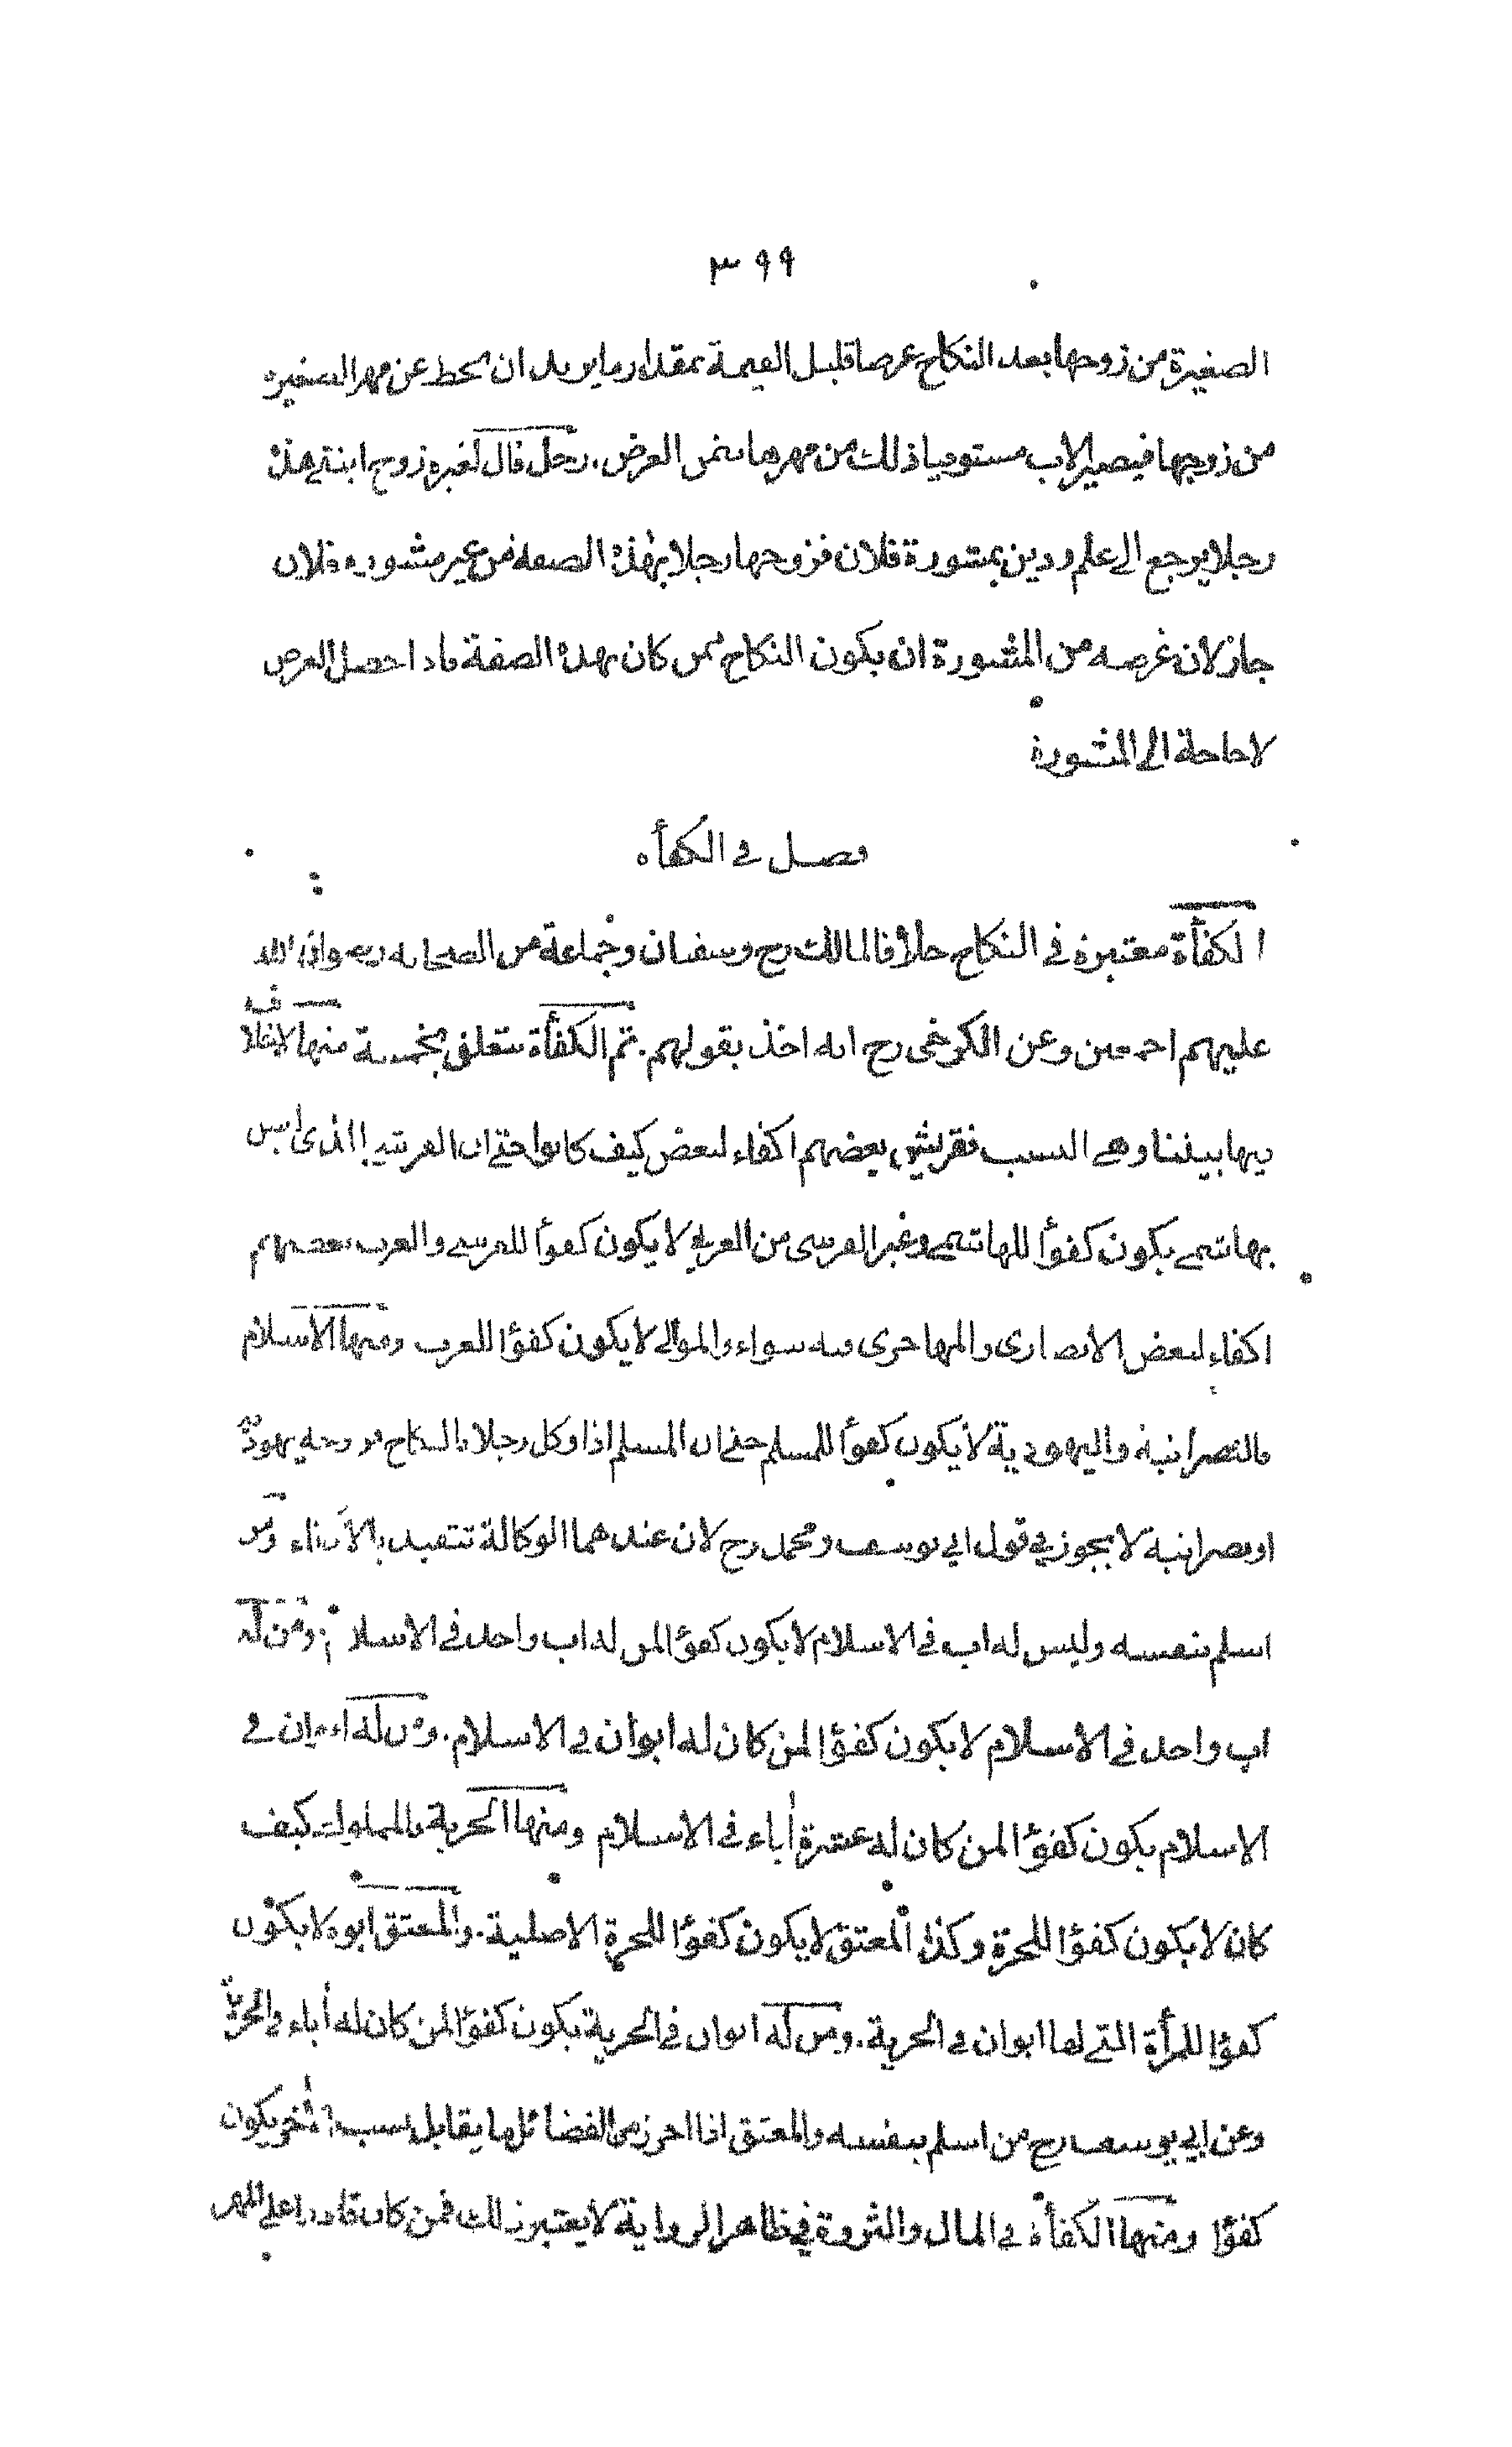 ٣٩٩
الصغيرة من زوجها بعد النكاح عرضا قليل القيمة بمقدار ما يريد ان يحط عن مهر الصغيرة
من زوجها فيصير الاب مستوفيا ذلك من مهرها بثمن العرض. رجل قال لغيره زوج ابنتي هذه
رجلا يرجع الى علم ودين بمشورة فلان فزوجها رجلا بهذه الصفة من غير مشورة فلان
جاز لان غرضه من المشورة ان يكون النكاح ممن كان بهذه الصفة فاذا حصل الغرض
لا حاجة الى المشورة
فصل في الكفأة
الكفأة معتبرة في النكاح خلافا لمالك رح وسفيان وجماعة من الصحابة رضوان الله
عليهم اجمعين وعن الكرخي رح انه اخذ بقولهم. ثم الكفأة تتعلق بخمسة منها لا خلاف
فيها بيننا وهي النسب فقريش بعضهم اكفاء لبعض كيف كانوا حتى ان القرشي الذي ليس
بهاشمي يكون كفؤا للهاشمي وغير القرشي من العربي لا يكون كفوا للقرشي والعرب بعضهم
اكفاء لبعض الانصاري والمهاجري فيه سواء والموالي لا يكون كفؤا للعرب ومنها الاسلام
فالنصرانية واليهودية لا يكون كفوا للمسلم حتى ان المسلم اذا وكل رجلا بالنكاح فزوجه يهودية
او نصرانية لا يجوز في قول ابي يوسف ومحمد رح لان عندهما الوكالة تتقيد بالاكفاء ومن
اسلم بنفسه وليس له اب في الاسلام لا يكون كفؤا لمن له اب واحد في الاسلام ومن له
اب واحد في الاسلام لا يكون كفؤا لمن كان له ابوان في الاسلام. ومن له ابوان في
الاسلام يكون كفؤا لمن كان له عشرة أباء في الاسلام ومنها الحرية فالمملوك كيف
كان لا يكون كفؤا للحرة وكذا المعتق لا يكون كفؤا للحرة الاصلية. والمعتق ابوه لا يكون
كفؤا للمرأة التي لها ابوان في الحرية. ومن له ابوان في الحرية يكون كفؤا لمن كان له أباء في الحرية
وعن ابي يوسف رح من اسلم بنفسه والمعتق اذا احرز من الفضائل ما يقابل نسب الأخر يكون
كفؤا ومنها الكفأة في المال والثروة في ظاهر الرواية لا يعتبر ذلك فمن كان قادرا على المهر